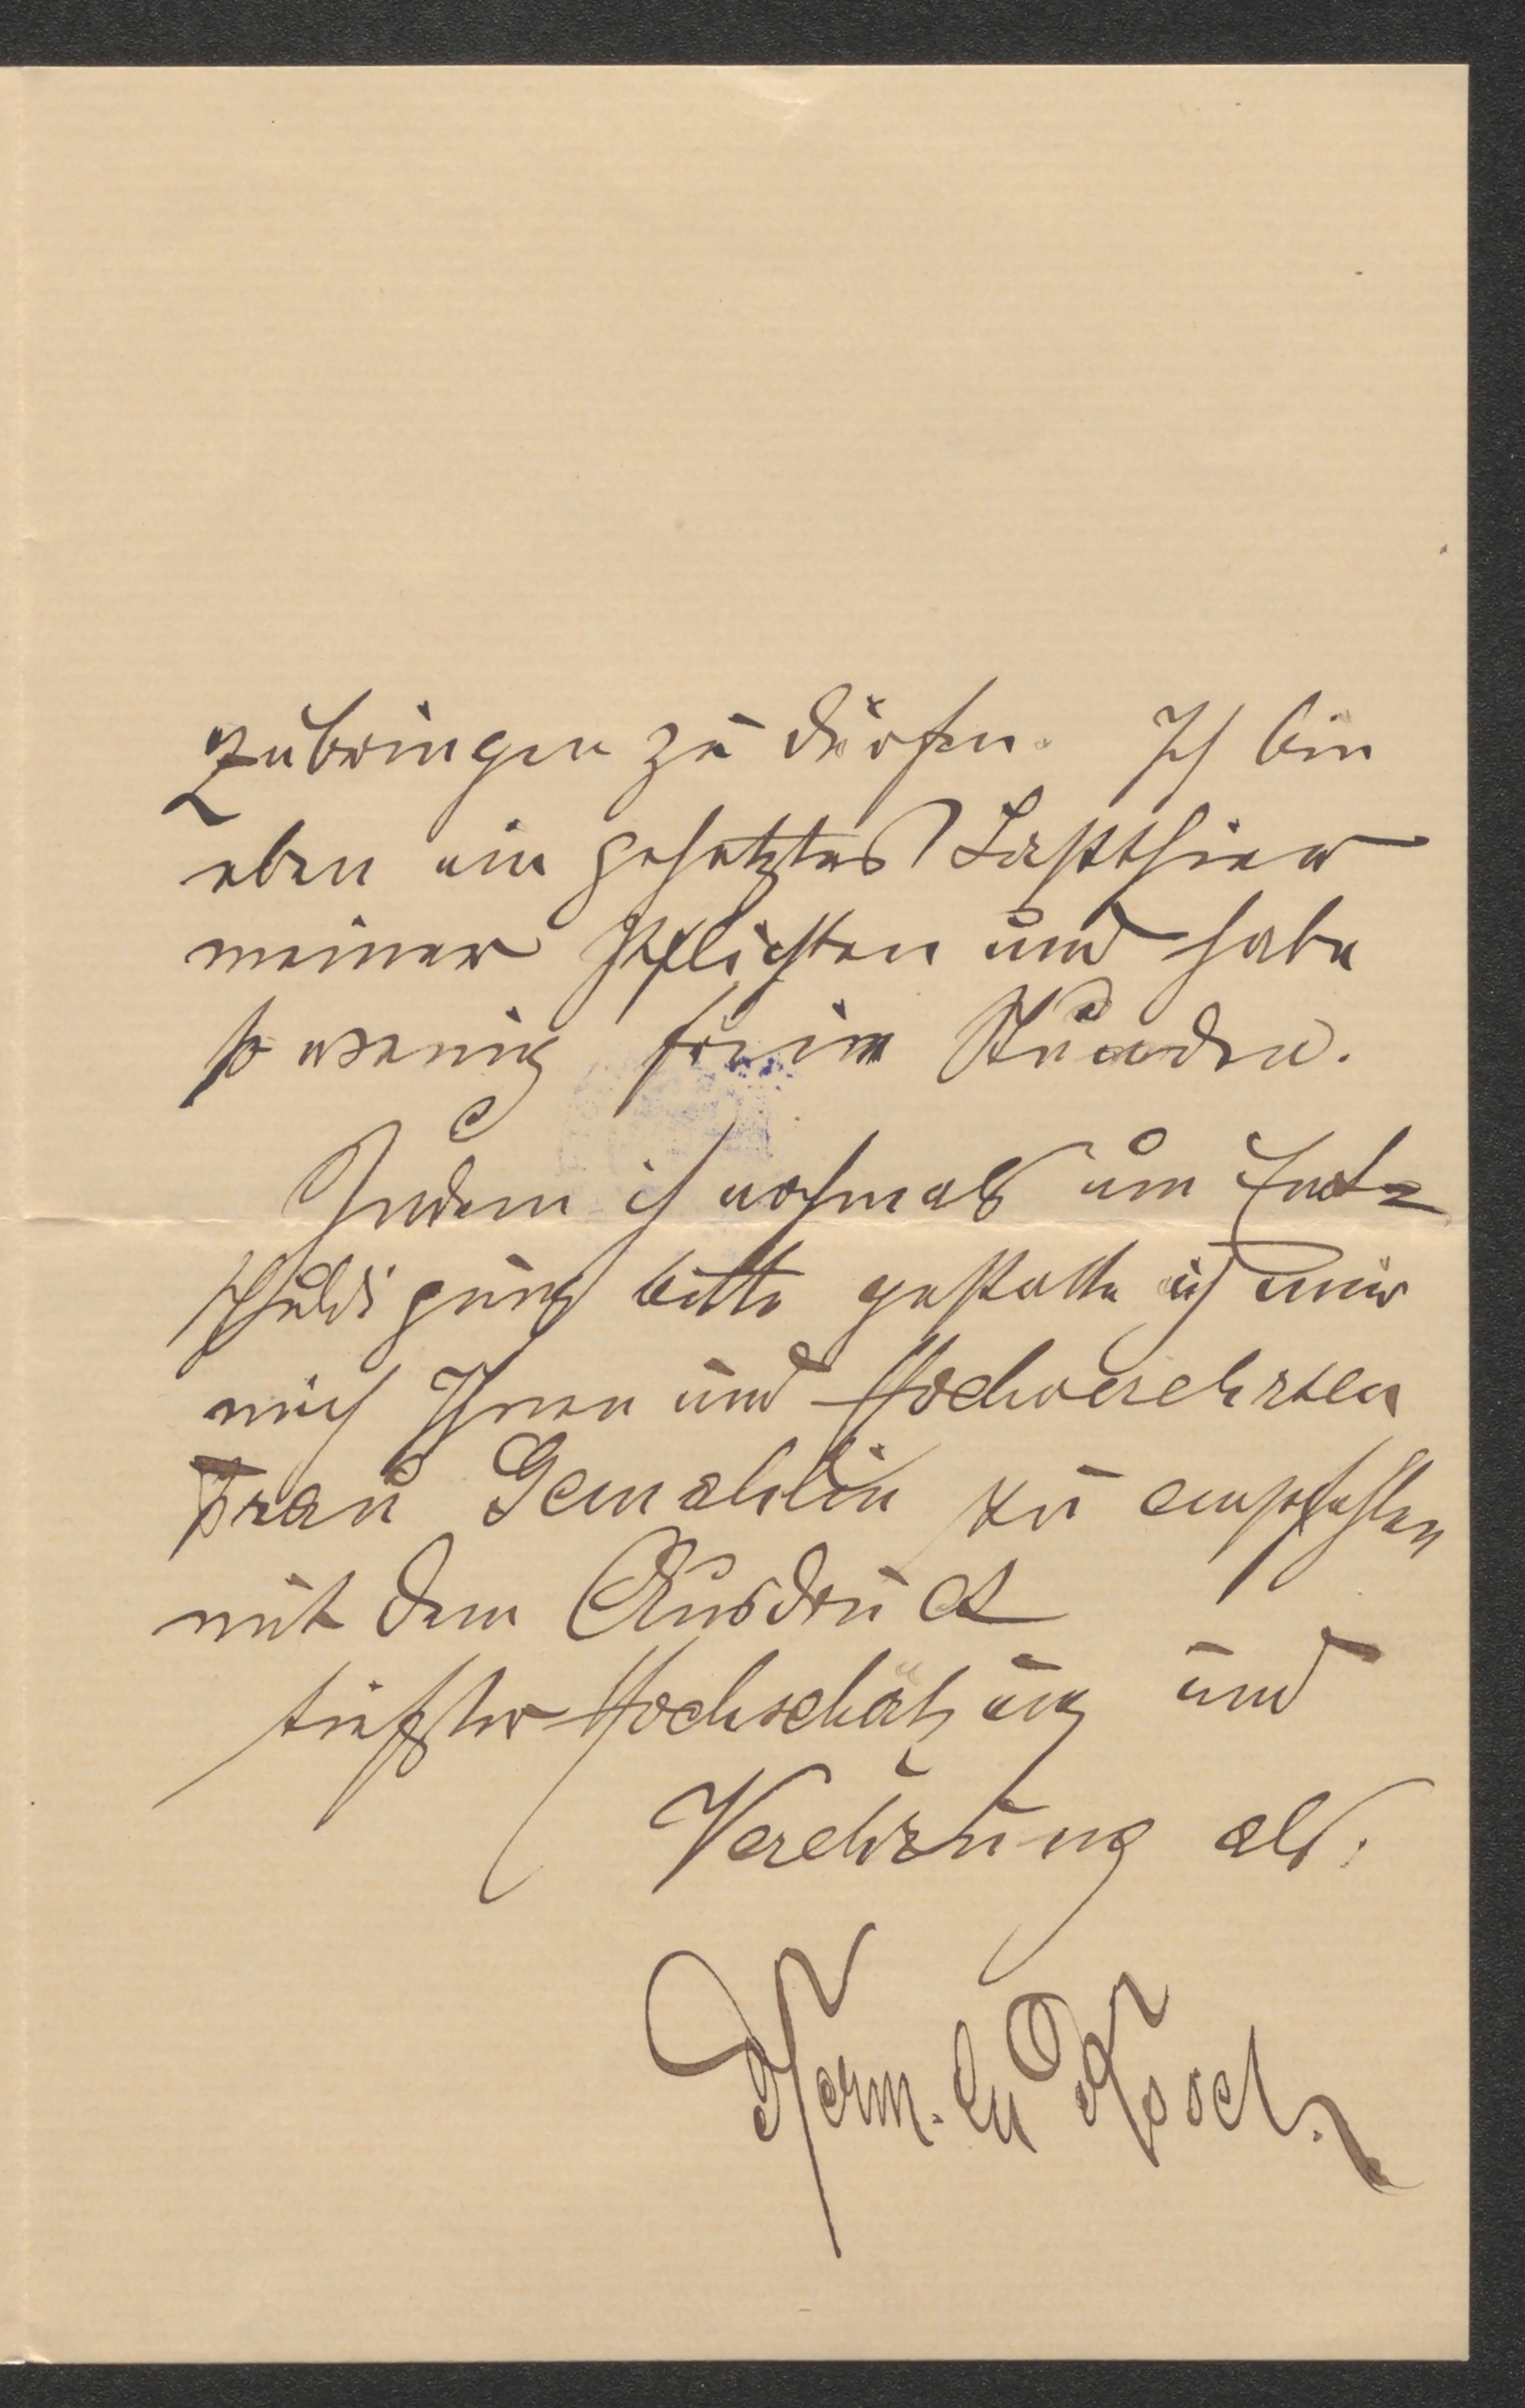 zubringen zu dürfen. Ich bin
eben ein gehetztes Lastthier
meiner Pflichten und habe
so wenig freie Stunden.
Indem ich nochmals um Ent=
schuldigung bitte gestatte ich mir
mich Ihnen und Hochverehrten
Frau Gemahlin zu empfehlen
mit dem Ausdruck
tiefster Hochschätzung und
Verehrung als.
Herm.